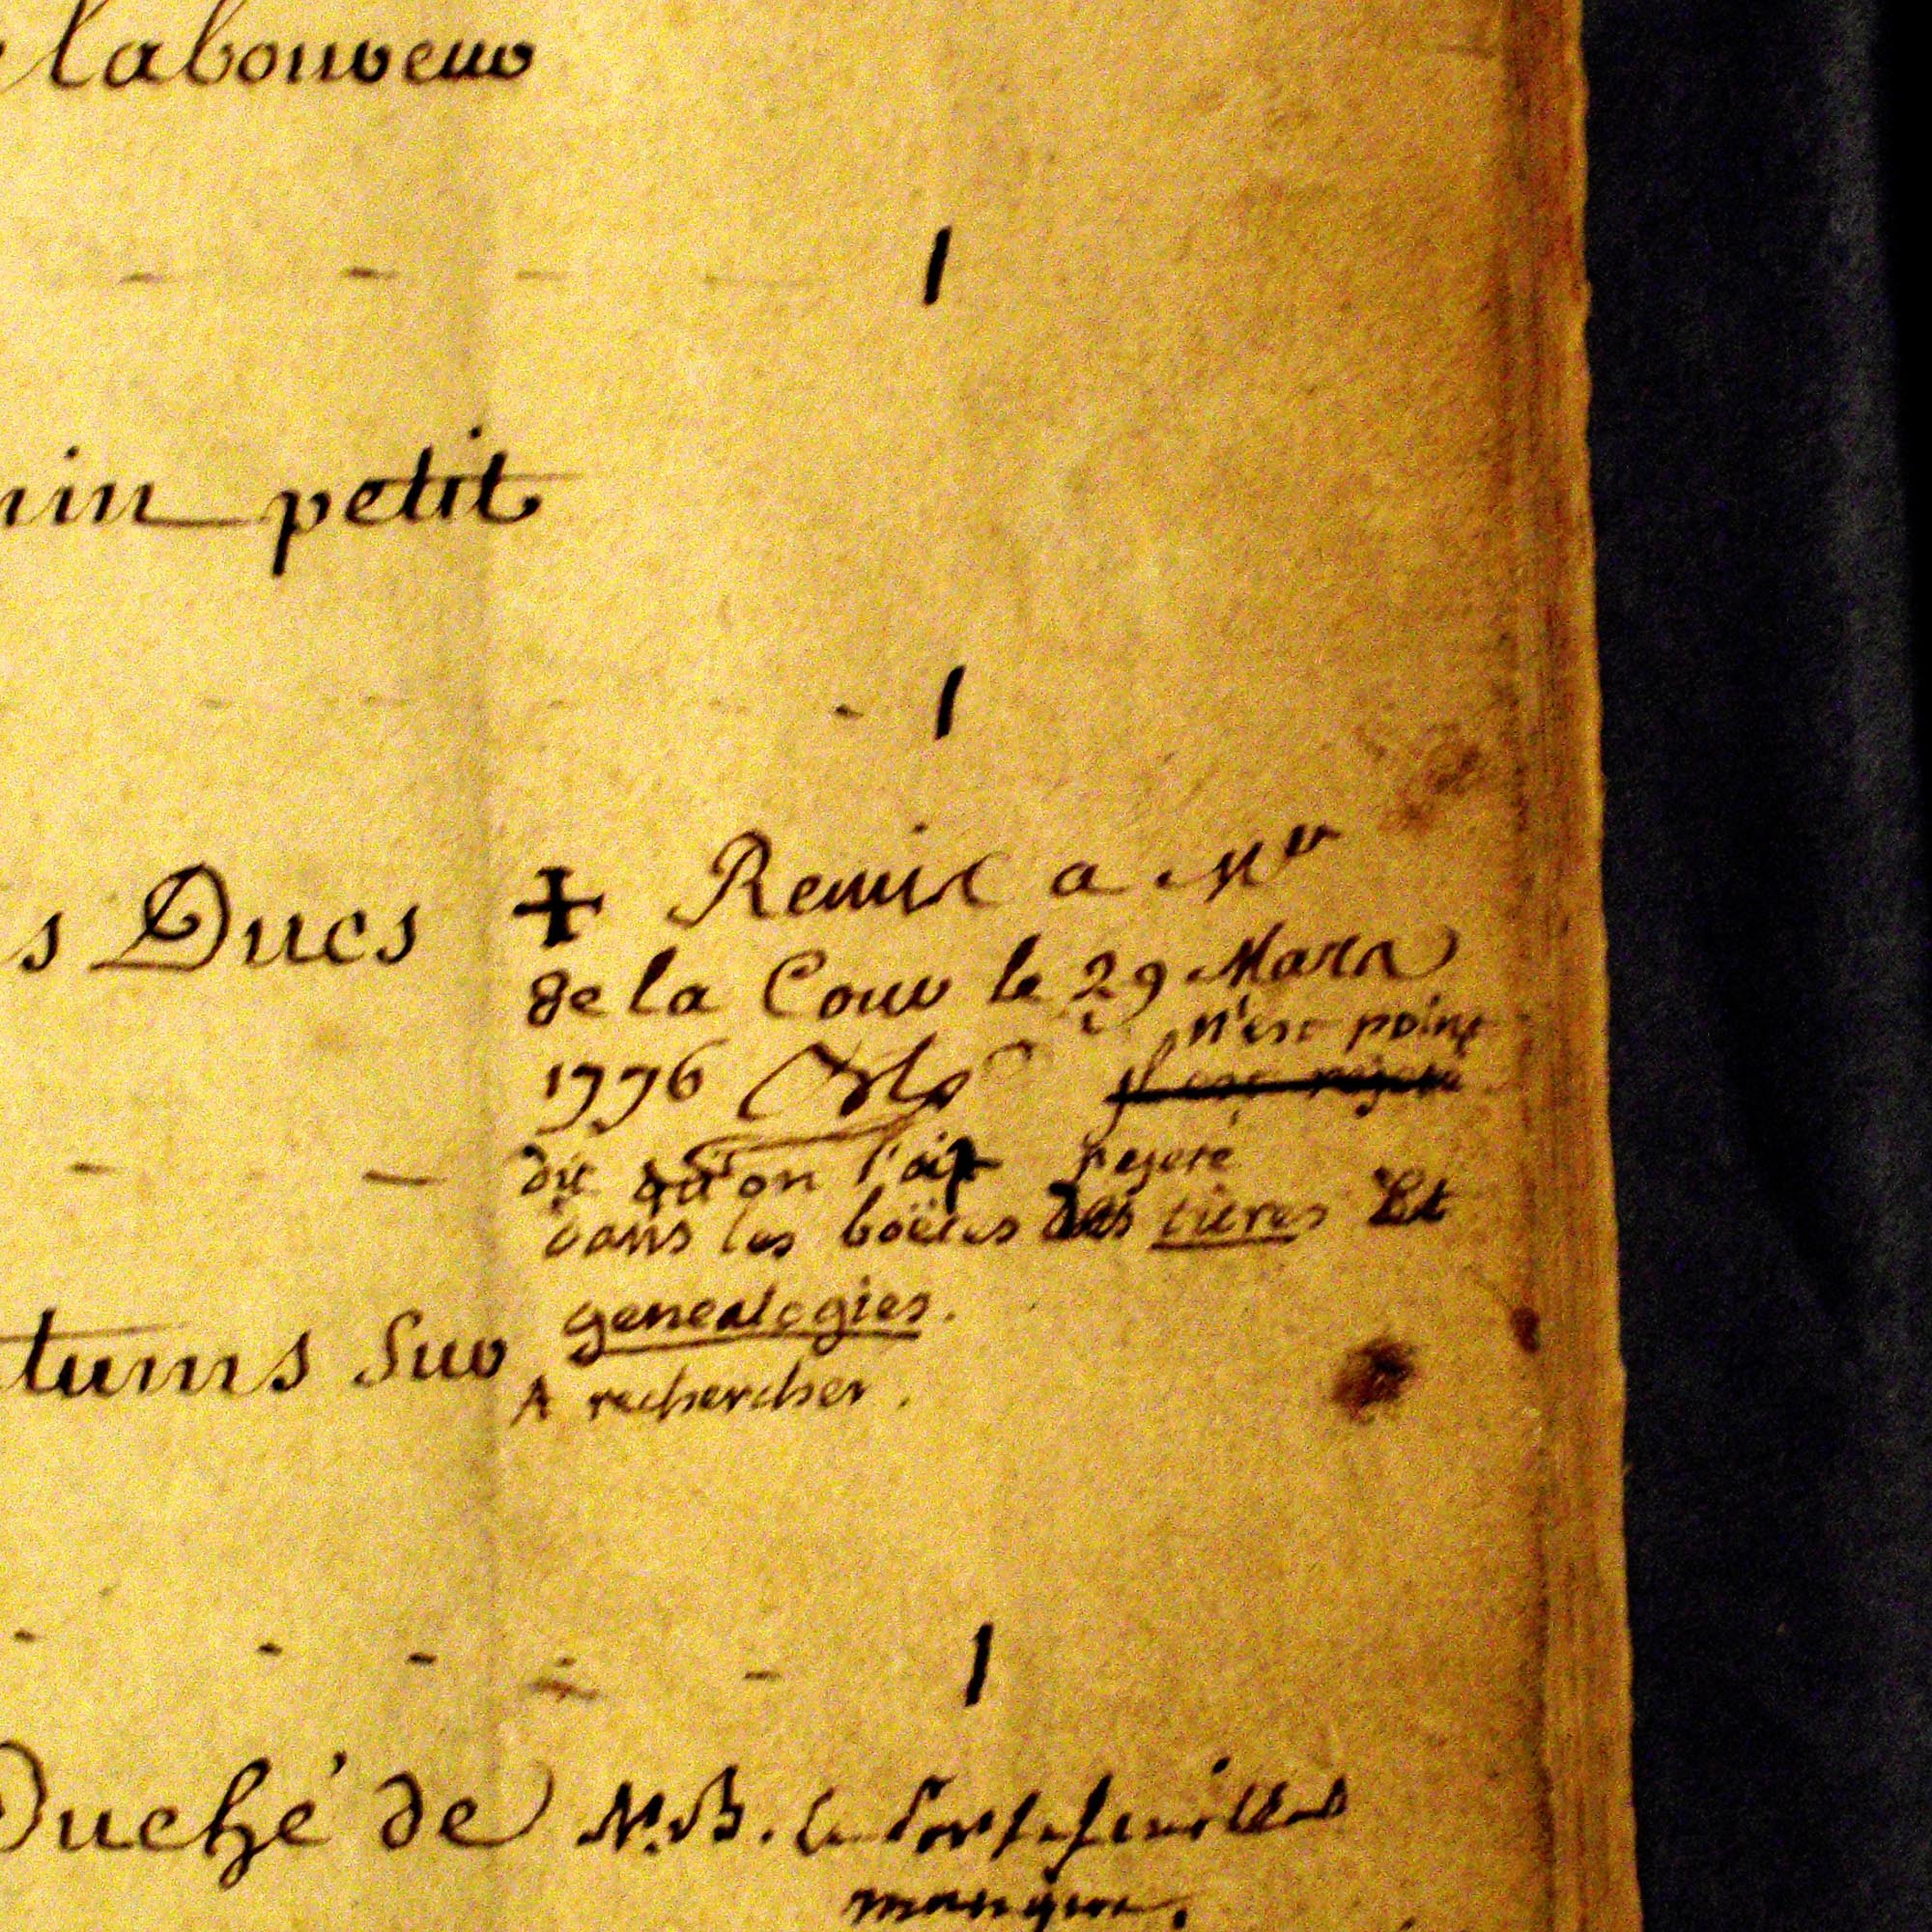 laboureur
1
petit
1
s Ducs + Remis a Mr
de la Cour le 29 Mars
n'est point
1776
dit qu'on l'ait rejeté
dans les boëtes des titres Et
genealogies.
tums Sur
A rechercher.
1
Duché de N.B. Le Portefeuille
manque.